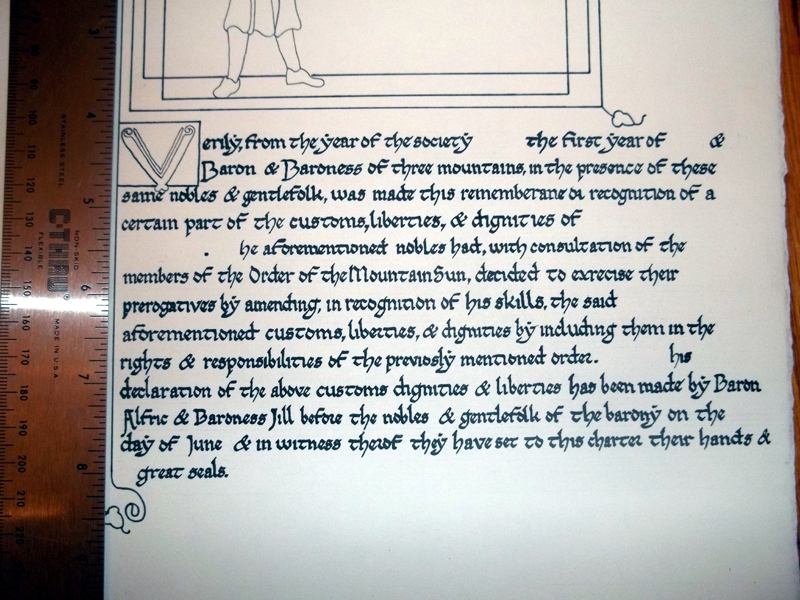 Verily, from the year of the society the first year of &
Baron & Baroness of three mountains, in the presence of these
same nobles & gentlefolk, was made this rememberane or recognition of a
certain part of the customs, liberties, & dignities of
he aforementioned nobles had, with consultation of the
members of the Order of the Mountain Sun, decided to exrecise their
prerogatives by amending, in recognition of his skills, the said
aforementioned customs, liberties, & dignities by including them in the
rights & responsibilities of the previosly mentioned order. his
declaration of the above customs dignities & liberties has been made by Baron
Alfric & Baroness Jill before the nobles & gentlefolk of the barony on the
day of June & in witness therof they have set to this charter their hands &
great seals.
STAINLESS STEEL
C-THRU
NON-SKID
FLEXIBLE
MADE IN U.S.A
3
4
5
6
7
8
90
100
110
120
130
140
150
160
170
180
190
200
210
220